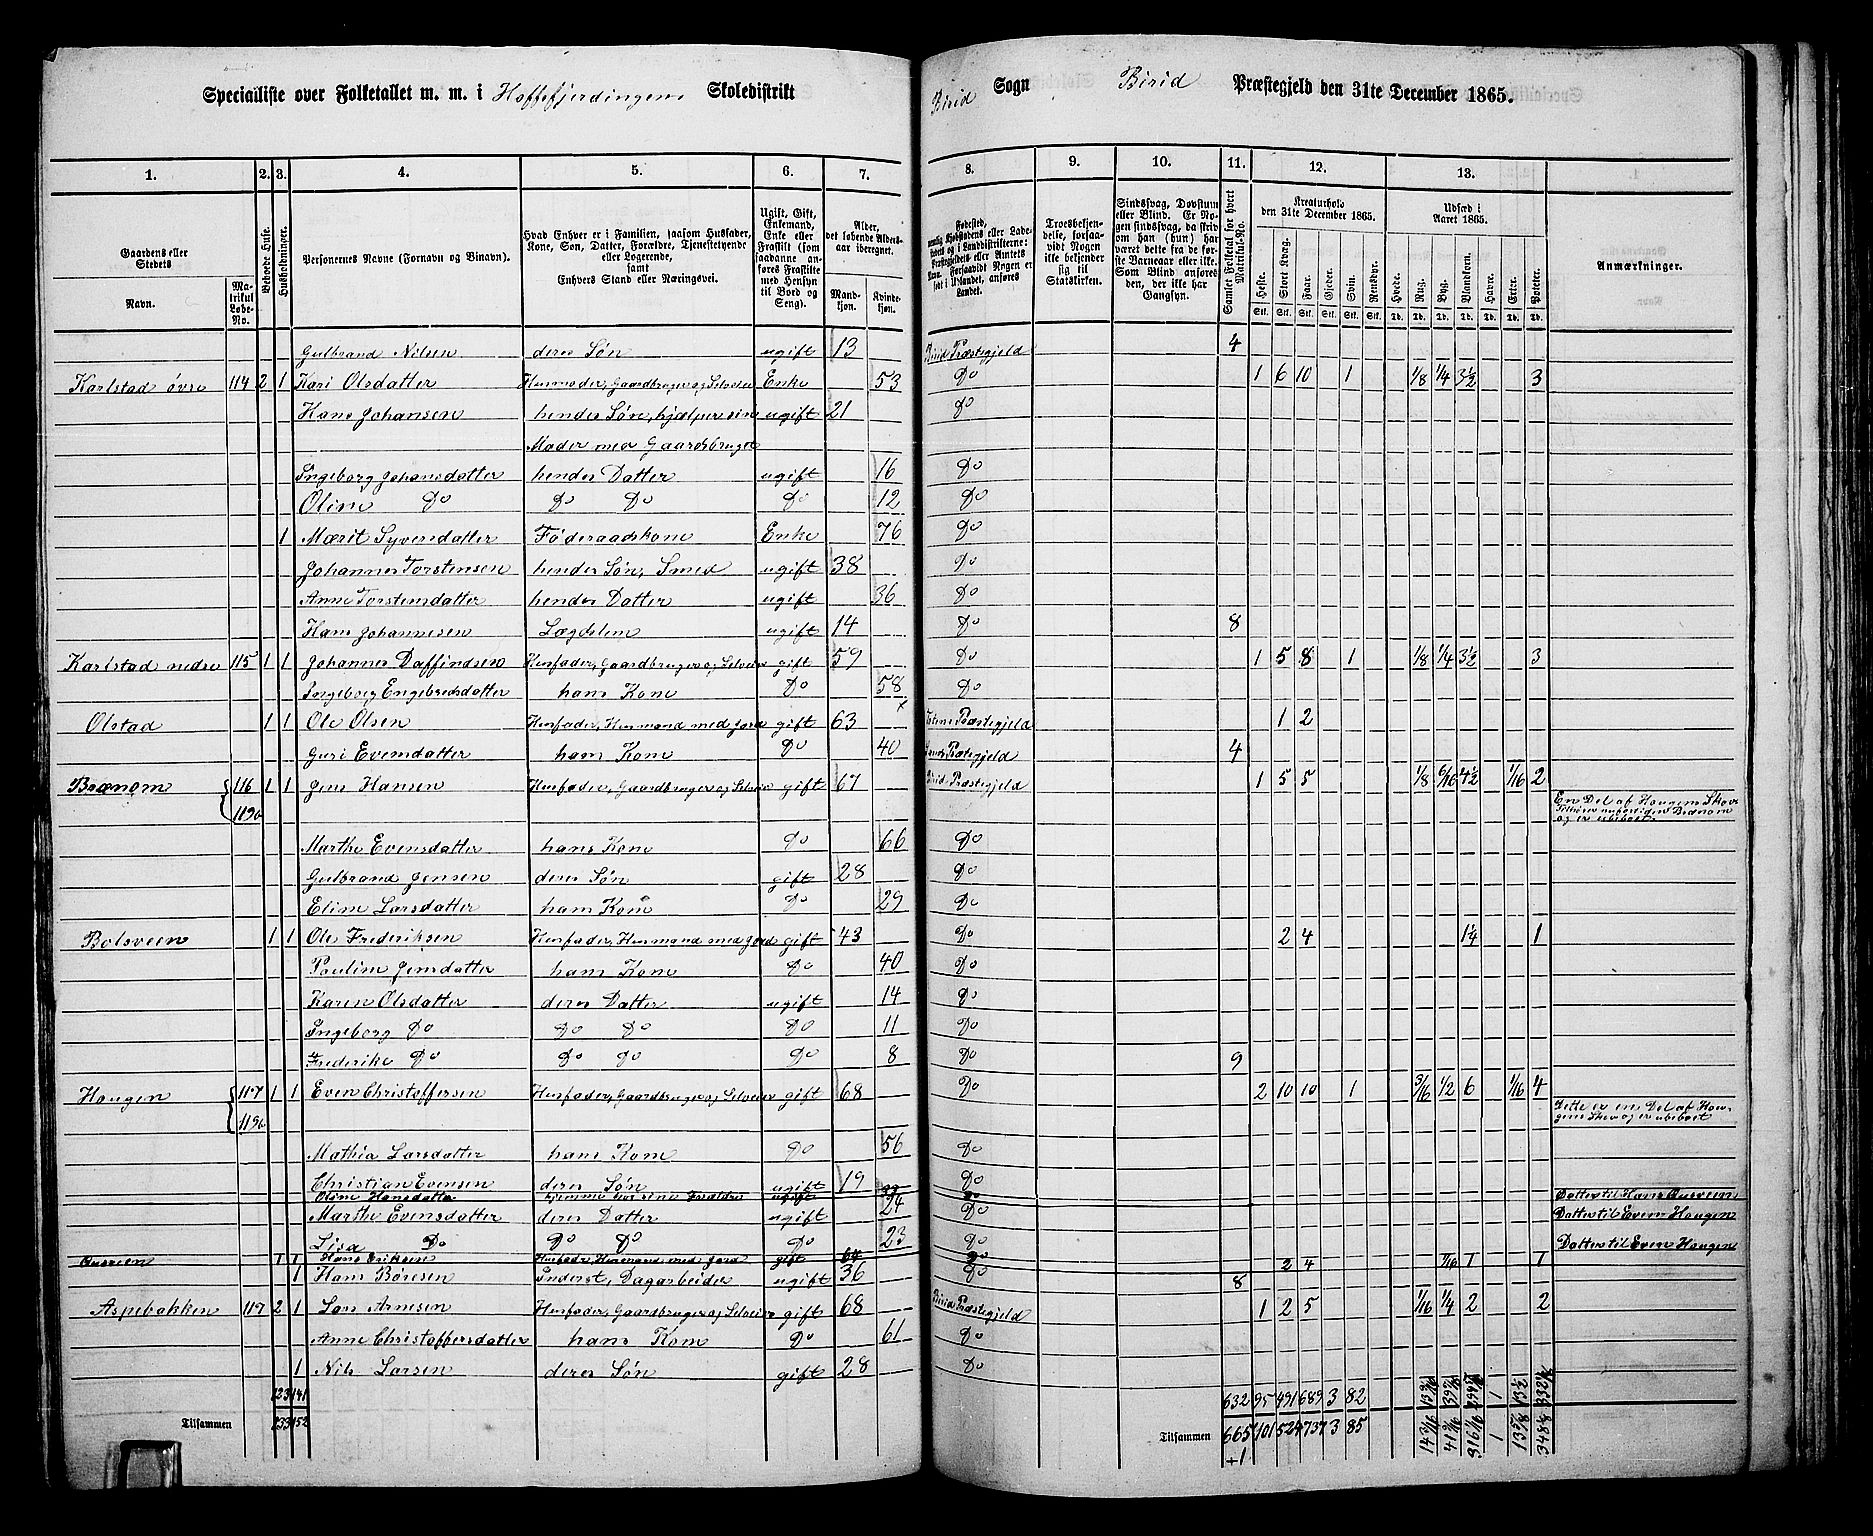 Specialliste over Folketallet m. m. i Hoffefjerdingens Skoledistrikt Birid Sogn Birid Præstegjeld den 31te December 1865.
1. 2. 3. 4. 5. 6. 7. 8. 9. 10. 11. 12. 13.
Gaardens eller Stedets
Navn. Matrikul Løbe-No.
Beboede Huse.
Husholdninger.
Personernes Navne (Fornavn og Binavn).
Hvad Enhver er i Familien, saasom Husfader, Kone, Søn, Datter, Forældre, Tjenestetyende eller Logerende, samt Enhvers Stand eller Næringsvei.
Ugift, Gift, Enkemand, Enke eller Fraskilt (som saadanne anføres Fraskilte med Hensyn til Bord og Seng).
Alder, det løbende Aldersaar iberegnet.
Mandkjøn. Kvindekjøn.
Troesbekjendelse, forsaavidt Nogen ikke bekjender sig til Statskirken.
Sindssvag, Døvstum eller Blind. Er Nogen sindssvag, da skrives om han (hun) har været dette fra de første Barneaar eller ikke. Som Blind anføres den, der ikke har Gangsyn.
Samlet Folketal for hvert Matrikul-No.
Kreaturhold den 31te December 1865.
Heste. Stort Kvæg. Faar. Gjeder. Svin. Rensdyr.
Udsæd i Aaret 1865.
Hvede. Rug. Byg. Blandkorn. Havre. Erter. Poteter.
Anmærkninger.
Gulbrand Nilsen deres Søn ugift 13 Birid Præstegjeld 4
Karlstad øvre 114 2 1 Kari Olsdatter Husmoder, Gaardbruger og Selveier Enke 53 Do 1 6 10 1 1/8 1/4 3 1/2 3
Hans Johansen hendes Søn, hjælper sin ugift 21 Do
Moder med Gaardsbruget
Ingeborg Johansdatter hendes Datter ugift 16 Do
Oline Do Do Do Do 12 Do
1 Marit Syversdatter Føderaadskone Enke 76 Do
Johannes Torstensen hendes Søn, Smed ugift 38 Do
Anne Torstensdatter hendes Datter ugift 36 Do
Hans Johannesen Lægdslem ugift 14 Do 8
Karlstad nedre 115 1 1 Johannes Daffindsen Husfader, Gaardbruger og Selveier gift 59 Do 1 5 8 1 1/8 1/4 3 1/2 3
Ingeborg Engebredsdatter hans Kone Do 58 Do
Olstad 1 1 Ole Olsen Husfader, Husmand med Jord gift 63 Præstegjeld 1 2
Guri Evensdatter hans Kone Do 40 Præstegjeld 4
Brænom 116 1 1 Jens Hansen Husfader, Gaardbruger og Selveier gift 67 Birid Præstegjeld 1 5 5 1/8 6/16 4 1/2 1/16 2
119b En Del af Hougens Skov
og er ubeboet
Marthe Evensdatter hans Kone Do 66 Do
Gulbrand Jensen deres Søn gift 28 Do
Eline Larsdatter hans Kone Do 29 Do
Bolsveen 1 1 Ole Frederiksen Husfader, Husmand med Jord gift 43 Do 2 4 1 1/4 1
Pauline Jensdatter hans Kone Do 40 Do
Karen Olsdatter deres Datter ugift 14 Do
Ingeborg Do Do Do Do 11 Do
Frederike Do Do Do Do 8 Do 9
Hougen 117 1 1 Even Christoffersen Husfader, Gaardbruger og Selveier gift 68 Do 2 10 10 1 3/16 1/2 6 1/16 4
119b Dette er en Del af Hougens Skov og er ubeboet
Mathia Larsdatter hans Kone Do 56 Do
Christian Evensen deres Søn ugift 19 Do
Oline Hansdatter hjemme hos sine Forældre ugift Do Datter til Hans
Marthe Evensdatter deres Datter ugift 24 Do Datter til Even Hougen
Lisa Do Do Do Do 23 Do Datter til Even Hougen
1 1 Hans Eriksen Husfader, Husmand med Jord gift 64 Do 2 4 1/16 1 1
1 Hans Børesen Inderst, Dagarbeider ugift 36 Do 8
Aspebakken 117 2 1 Lars Arnesen Husfader, Gaardbruger og Selveier gift 68 Birid Præstegjeld 1 2 5 1/16 1/4 2 2
Anne Christoffersdatter hans Kone Do 61 Do
1 Nils Larsen deres Søn gift 28 Do
123 141 632 95 491 689 3 82 1
Tilsammen 133 152 Tilsammen 665 101 524 737 3 85 1
+1